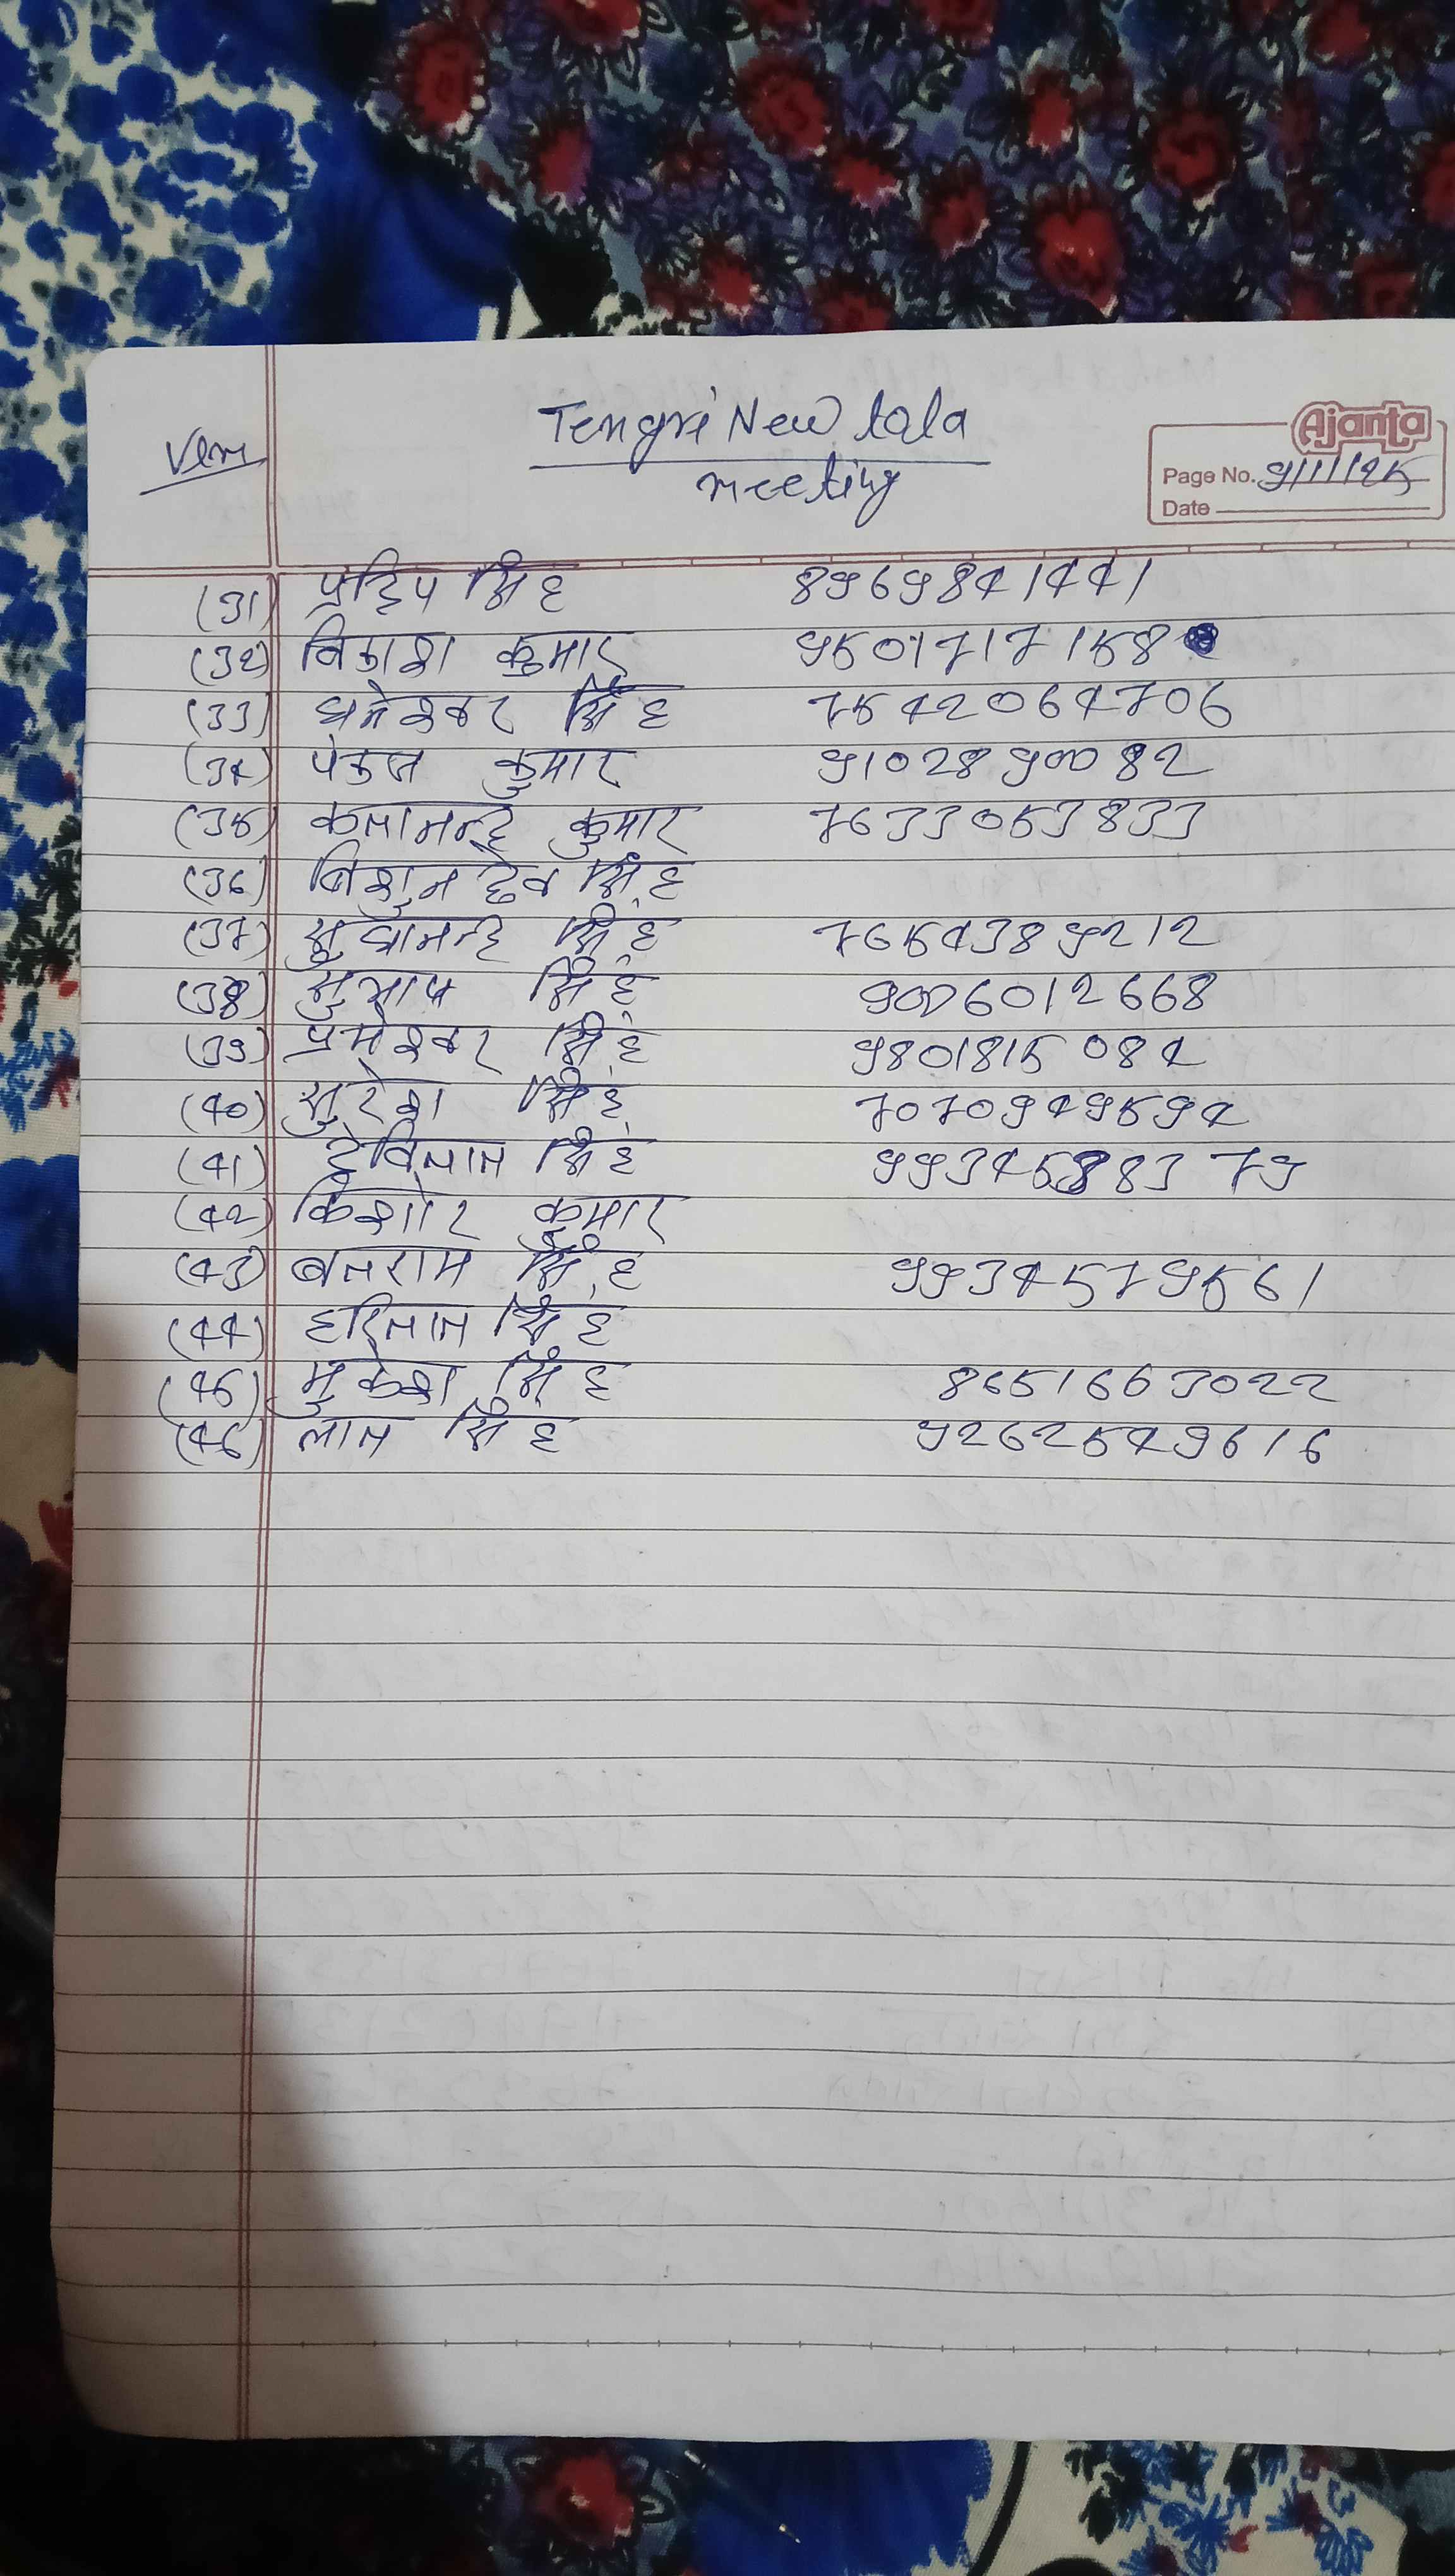 Tengri New tola
meeting
Ajanta
Page No. 9/11/25
Date
(31) प्रदिप सिंह 8969841441
(32) विकाश कुमार 9501717158
(33) धनेश्वर सिंह 7542064706
(34) पंकज कुमार 9102890082
(35) कलानन्द कुमार 7633053833
(36) बिशुनदेव सिंह
(37) सुधानन्द सिंह 7654389212
(38) सुभाष सिंह 9006012668
(39) प्रमेश्वर सिंह 9801815084
(40) सुरेश सिंह 7070949594
(41) देविलाल सिंह 99345883 79
(42) किशोर कुमार
(43) बलराम सिंह 9934579561
(44) हरिलाल सिंह
(45) मुकेश सिंह 8651663022
(46) लाल सिंह 9262549616